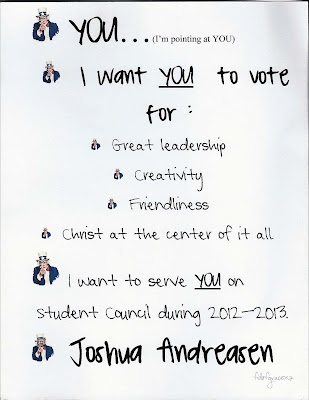 YOU... (I'm pointing at YOU)
I want YOU to vote
for :
Great leadership
Creativity
Friendliness
Christ at the center of it all
I want to serve YOU on
Student Council during 2012-2013.
Joshua Andreasen